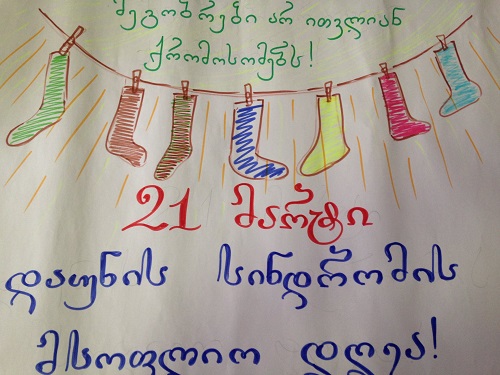 მეგობრები არ ითვლიან
ქრომოსომებს!
21 მარტი
დაუნის სინდრომის
მსოფლიო დღეა!